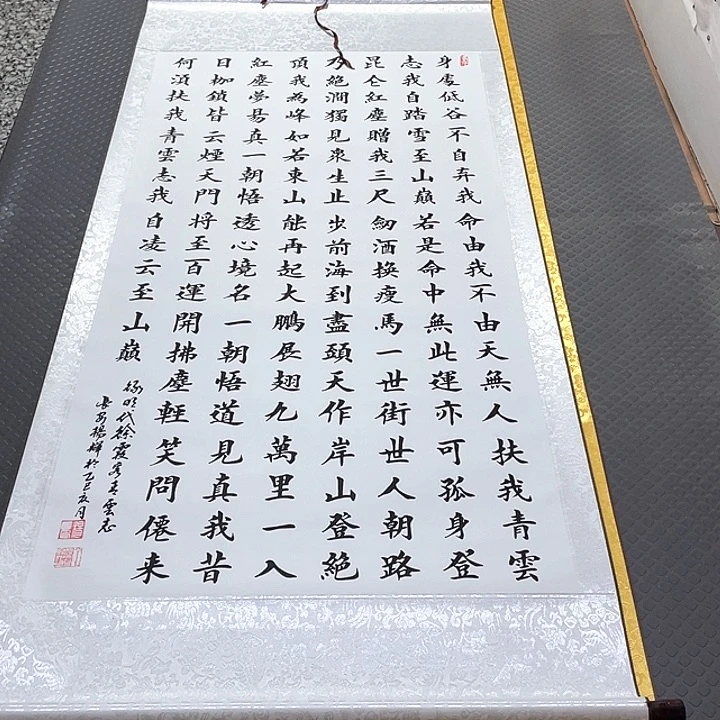 身處低谷不自弃我命由我不由天無人扶我青雲
志我自踏雪至山巔若是命中無此運亦可孤身登
昆仑紅塵贈我三尺劍酒換瘦馬一世街世人朝路
乃絕澗獨見衆生止步前海到盡頭天作岸山登絕
頂我為峰如若東山能再起大鵬展翅九萬里一入
紅塵夢易真一朝悟透心境名一朝悟道見真我昔
日枷鎖皆云煙天門將至百運開拂塵輕笑問僊来
何湏扶我青雲志我自凌云至山巔
録明代徐霞客青雲志
長安楊輝於乙巳亥月